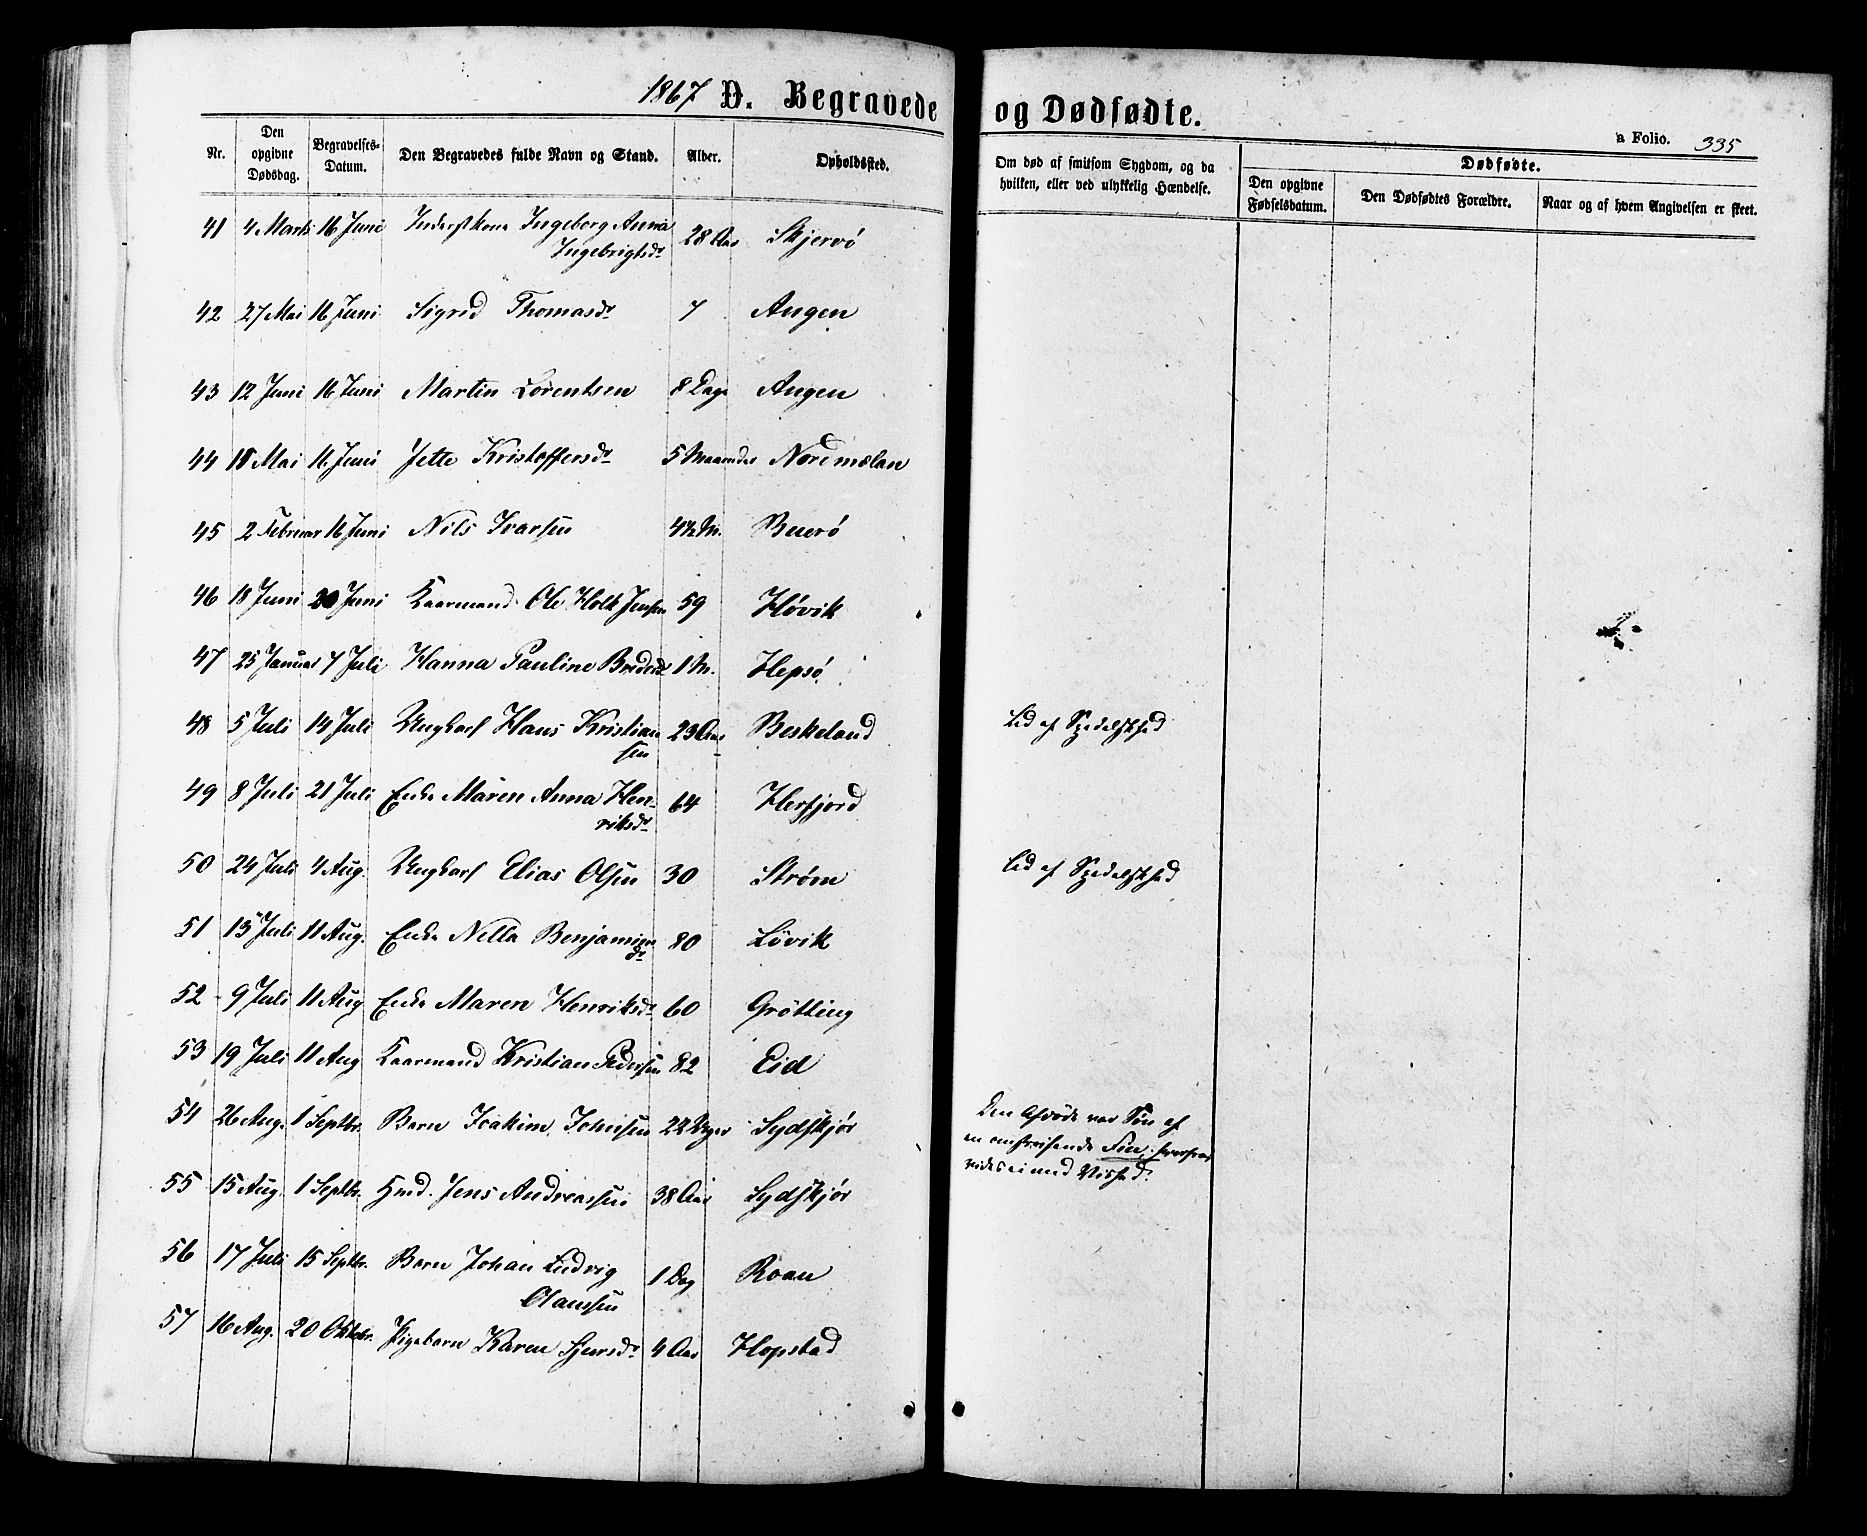 1867 D. Begravede og Dødfødte.
a Folio. 335
Nr. Den opgivne Dødsdag. Begravelses-Datum. Den Begravedes fulde Navn og Stand. Alder. Opholdssted. Om død af smitsom Sygdom, og da hvilken, eller ved ulykkelig Hændelse. Dødfødte.
Den opgivne Fødselsdatum. Den Dødfødtes Forældre. Naar og af hvem Angivelsen er skeet.
41 4 Marts 16 Juni Inderstkone Ingeborg Anna 28 Aar Skjervö
Ingebrigtsdr
42 27 Mai 16 Juni Sigrid Thomasdr 7 Angen
43 12 Juni 16 Juni Martin Lorentsen 8 Dage Angen
44 18 Mai 16 Juni Jette Kristoffersdr 5 Maaneder Nordmælan
45 2 Februar 16 Juni Nils Ivarsen 4½ M. Buerö
46 18 Juni 20 Juni Kaarmand Ole Holk Jensen 59 Hövik
47 25 Januar 7 Juli Hanna Pauline 1 M. Hepsö
48 5 Juli 14 Juli Ungkarl Hans Kristian 23 Aar Beskeland Led af Spedalskhed
sen
49 8 Juli 21 Juli Enke Maren Anna Hen- 64 Herfjord
riksdr
50 24 Juli 4 Aug. Ungkarl Elias Olsen 30 Strøm Led af Spedalskhed
51 13 Juli 11 Aug. Enke Nella Benjamins 80 Lövik
dr
52 9 Juli 11 Aug Enke Maren Henriksdr 60 Grötting
53 19 Juli 11 Aug Kaarmand Kristian Pedersen 82 Eid
54 26 Aug. 1 Septbr. Barn Joakim Johnsen 22 Uger Sydskjør Den Afdöde var Sön af
en omstreifende Fin; hvorfra
vides ei med Vished.
55 15 Aug. 1 Septbr. Hmd. Jens Andreassen 38 Aar Sydskjør
56 17 Juli 15 Septbr. Barn Johan Ludvig 1 Dag Roan
Olaussen
57 16 Aug. 20 Oktobr. Pigebarn Karen Sjursdr 4 Aar Hopstad